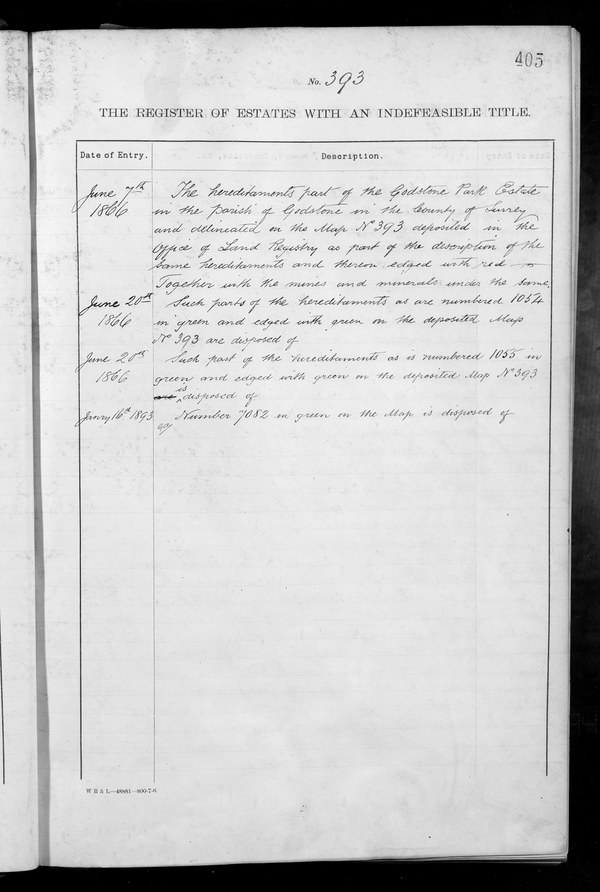 405
No. 393
THE REGISTER OF ESTATES WITH AN INDEFEASIBLE TITLE.
Date of Entry. Description.
June 7th The hereditaments part of the Godstone Park Estate
1866 in the Parish of Godstone in the County of Surrey
and delineated on the Map No 393 deposited in the
Office of Land Registry as part of the description of the
same hereditaments and thereon edged with red
Together with the mines and minerals under the same.
June 20th Such parts of the hereditaments as are numbered 1054
1866 in green and edged with green on the deposited Map
No 393 are disposed of
June 20th Such part of the hereditaments as is numbered 1055 in
1866 green and edged with green on the deposited Map No 393
are is disposed of
Janry 16th 1893 Number 7082 in green on the Map is disposed of
W B & L.—48881—800-7-6